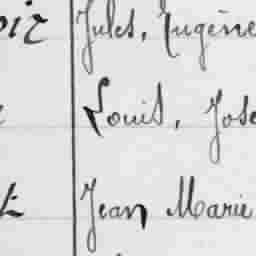 Jules, Eugène
Louis, Jose
Jean Marie